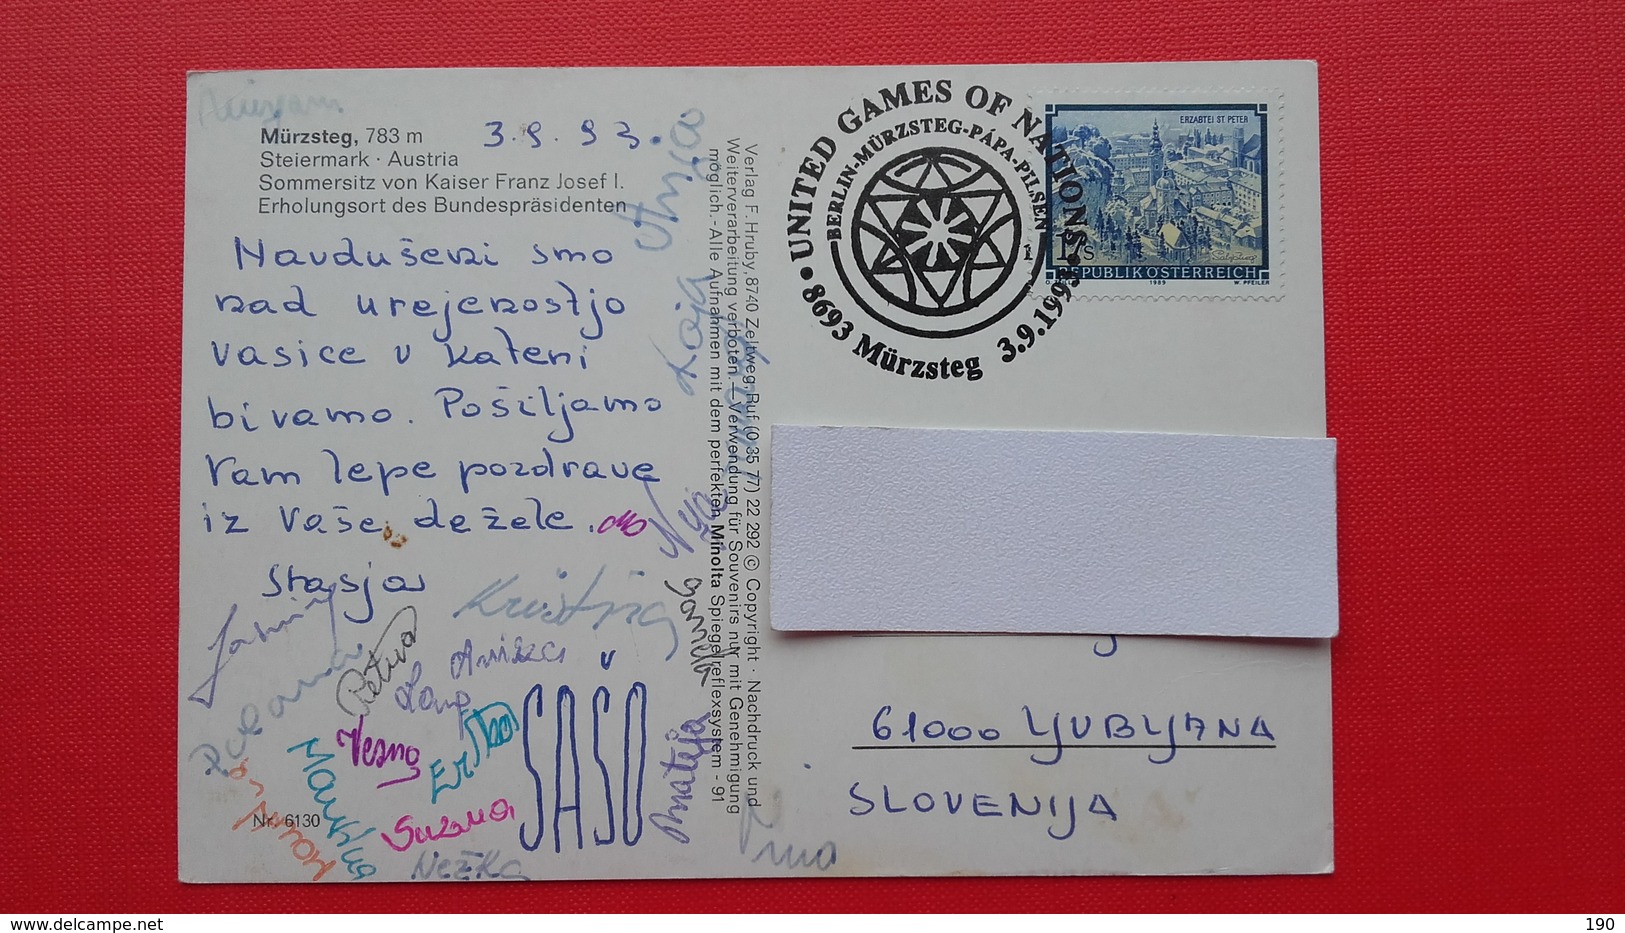 Mürzsteg, 783 m
Steiermark · Austria
Sommersitz von Kaiser Franz Josef I.
Erholungsort des Bundespräsidenten
3.9.93.
Navdušeni smo
nad urejenostjo
vasice v kateri
bivamo. Pošiljamo
vam lepe pozdrave
iz vaše dežele.
Stasja
Kristina
Petra
Vesna
Suzana
SAŠO
Nežka
Mateja
Nr. 6130
Verlag F. Hruby, 8740 Zeltweg, Ruf (0 35 77) 22 292 © Copyright · Nachdruck und
Weiterverarbeitung verboten. – Verwendung für Souvenirs nur mit Genehmigung
möglich. - Alle Aufnahmen mit dem perfekten Minolta Spiegelreflexsystem - 91
• UNITED GAMES OF NATIONS •
BERLIN-MÜRZSTEG-PÁPA-PILSEN
8693 Mürzsteg 3.9.1993
1
ERZABTEI ST PETER
17s
REPUBLIK ÖSTERREICH
1989
W. PFEILER
61000 LJUBLJANA
SLOVENIJA
190